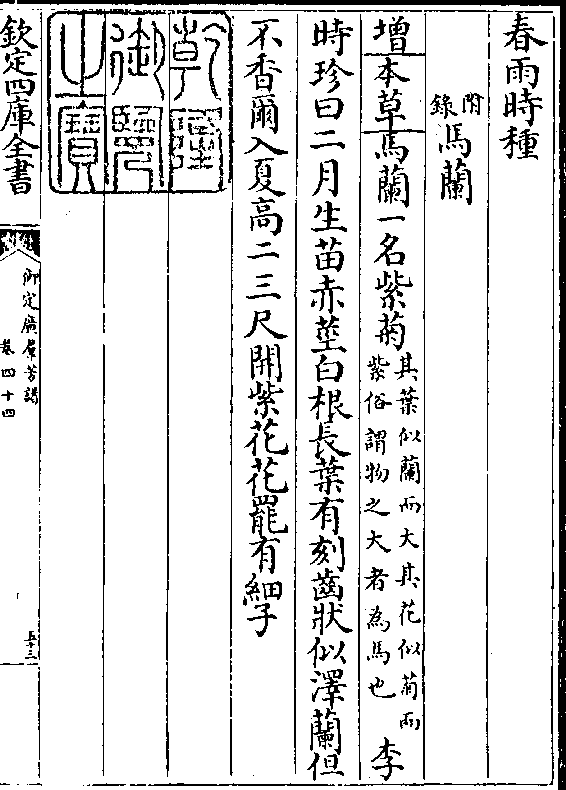 春雨時種
附錄馬蘭
增本草馬蘭一名紫菊其葉似蘭而大其花似菊而紫俗謂物之大者為馬也李
時珍曰二月生苗赤莖白根長葉有刻齒狀似澤蘭但
不香爾入夏高二三尺開紫花花罷有細子
乾隆御覽之寶
欽定四庫全書
御定廣羣芳譜
卷四十四
五十三